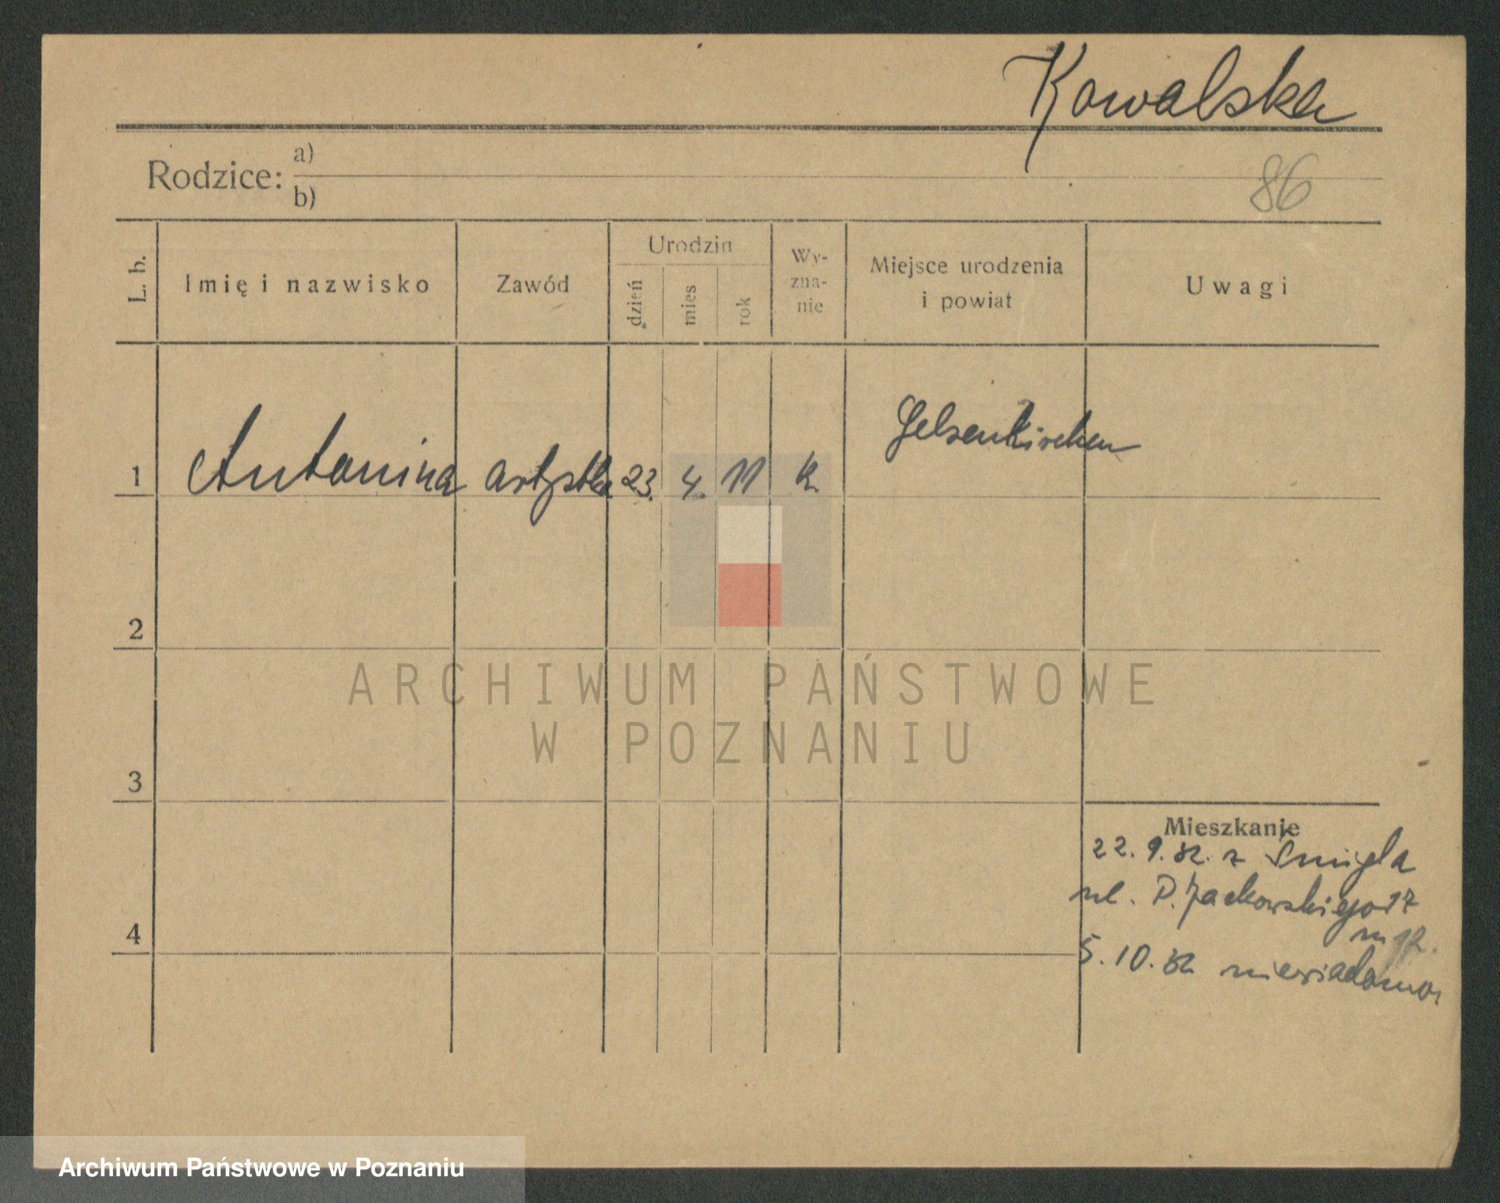 Kowalska
Rodzice: a)
b)
86
L. b.
Imię i nazwisko
Zawód
Urodzin
dzień
mies
rok
Wy-
zna-
nie
Miejsce urodzenia
i powiat
Uwagi
1 Antonina artystka 23. 4. 11 k. Gelsenkirchen
2
3
4
Mieszkanie
22. 9. 32. z Śmigla
ul. P. Jackowskiego 17
5. 10. 32 niewiadomo
ARCHIWUM PAŃSTWOWE
W POZNANIU
Archiwum Państwowe w Poznaniu